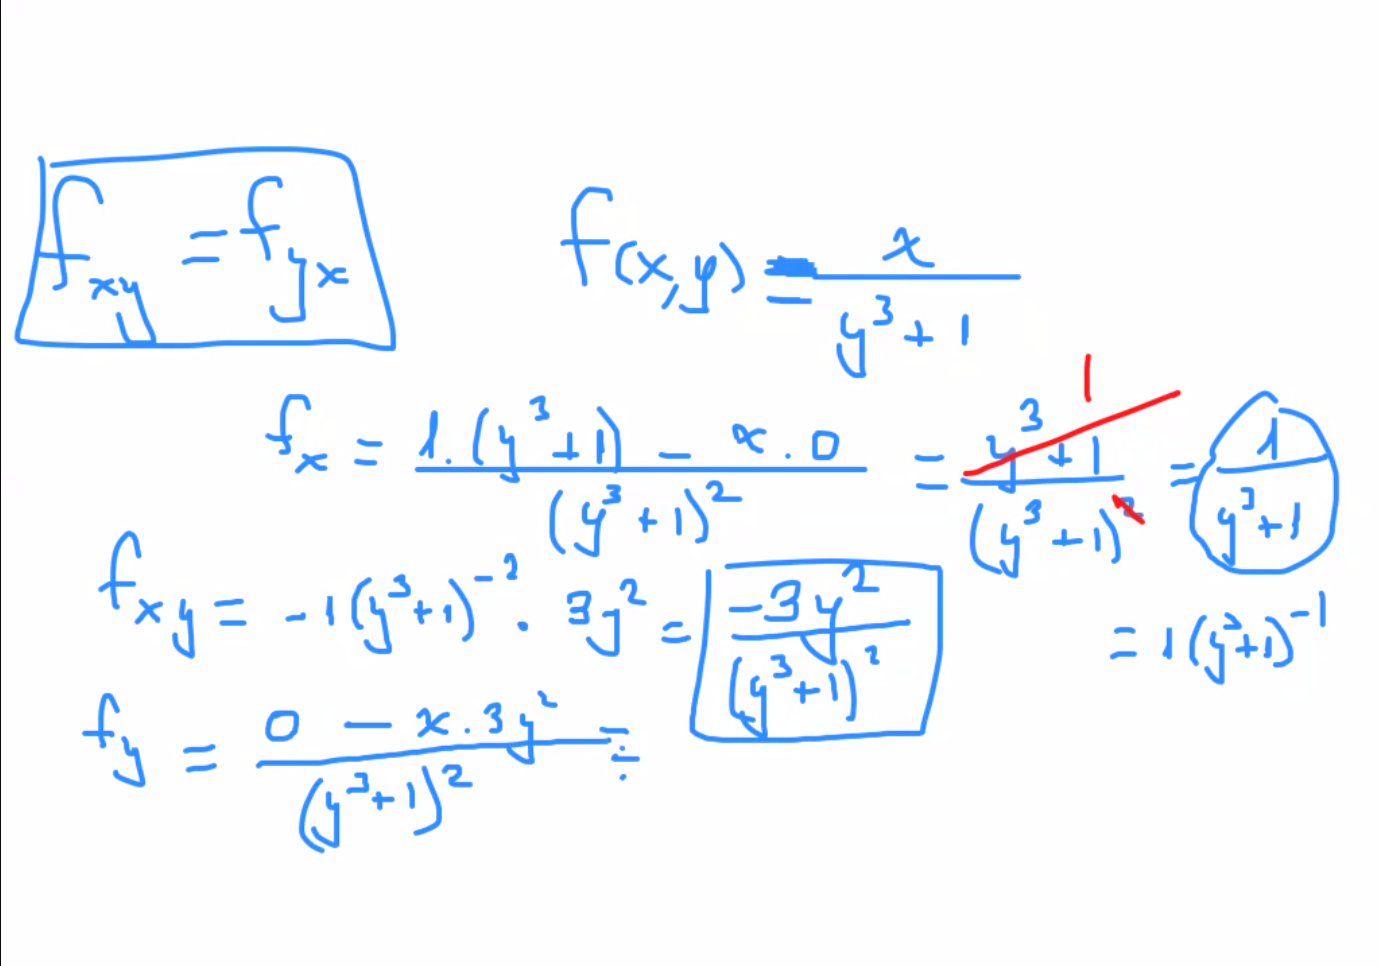 f_xy = f_yx
f(x,y) = x/(y³ + 1)
f_x = (1·(y³+1) − x·0)/(y³+1)² = (y³+1)/(y³+1)² = 1/(y³+1)
1
= 1(y³+1)⁻¹
f_xy = −1(y³+1)⁻² · 3y² = −3y²/(y³+1)²
f_y = (0 − x·3y²)/(y³+1)² =